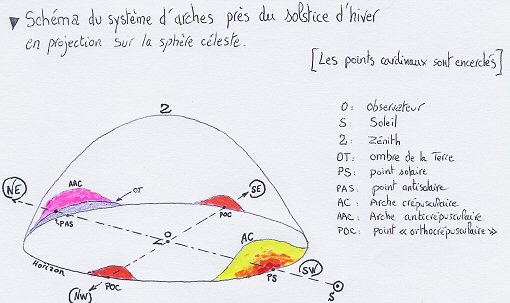 ▼ Schéma du système d'arches près du solstice d'hiver
en projection sur la sphère céleste.
[Les points cardinaux sont encerclés]
O: Observateur
S: Soleil
Z: Zénith
OT: ombre de la Terre
PS: point solaire
PAS: point antisolaire
AC: Arche crépusculaire
AAC: Arche anticrépusculaire
POC: point « orthocrépusculaire »
Z
NE
AAC
OT
SE
PAS
POC
O
AC
Horizon
SW
PS
NW
POC
S